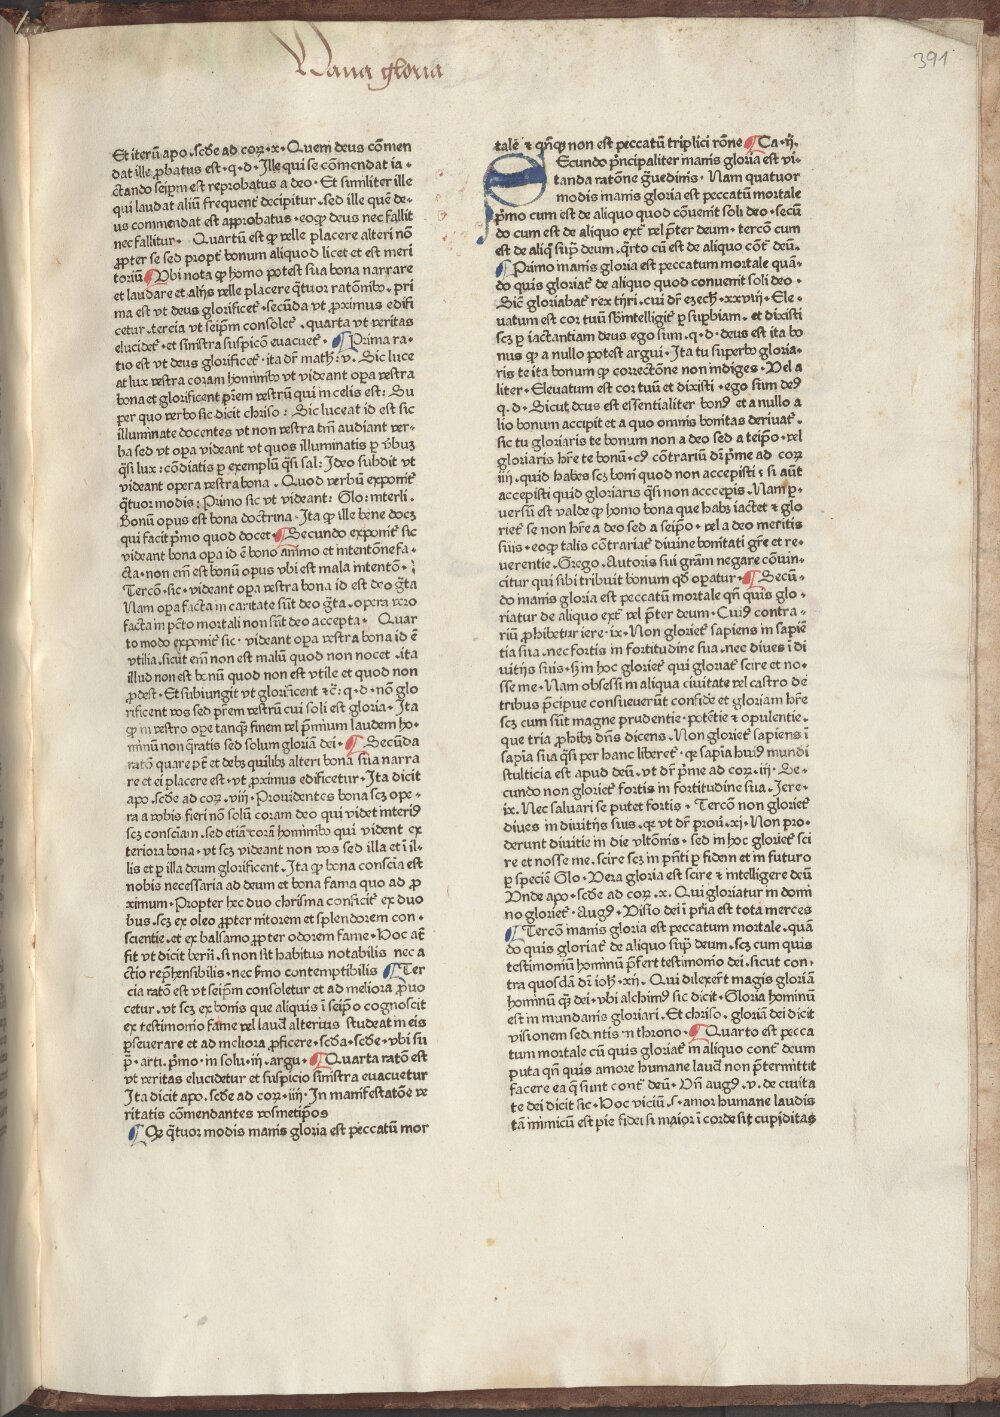 Vana gloria
391
Et iterū apo. scđe ad cor̄. x. Quem deus cōmen
dat ille ꝓbatus est. q. d. Ille qui se cōmendat ia-
ctando seip̄m est reprobatus a deo. Et similiter ille
qui laudat aliū frequent᷑ decipitur. sed ille quē de-
us commendat est approbatus. eoꝙ deus nec fallit
nec fallitur. Quartū est ꝙ velle placere alteri nō
ꝓpter se sed propt᷑ bonum aliquod licet et est meri
toriū ¶ Vbi nota ꝙ homo potest sua bona narrare
et laudare et alijs velle placere q̄tuor ratōnibꝰ. pri
ma est vt deus glorificet᷑. secūda vt ꝓximus edifi
cetur. tercia vt seip̄m consolet᷑. quarta vt veritas
elucidet᷑. et sinistra suspicō euacuet᷑. ¶ Prima ra-
tio est vt deus glorificet᷑. ita dr̄ math. v. Sic luce
at lux vestra coram hominibꝰ vt videant oꝑa vestra
bona et glorificent pr̄em vestrū qui in celis est: Su
per quo verbo sic dicit chriso: Sic luceat id est sic
illuminate docentes vt non vestra tm̄ audiant ver-
ba sed vt oꝑa videant vt quos illuminatis ꝑ v̄buꝫ
q̄si lux: cōdiatis ꝑ exemplū q̄si sal: Ideo subdit vt
videant opera vestra bona. Quod verbū exponit᷑
q̄tuor modis: Primo sic vt videant: Glo: interli.
Bonū opus est bona doctrina. Ita ꝙ ille bene docꝫ
qui facit p̄mo quod docet. ¶ Secundo exponit᷑ sic
videant bona oꝑa id ē bono animo et intentōne fa-
cta. non em̄ est bonū opus vbi est mala intentō. ¶
Tercō. sic. videant oꝑa vestra bona id est deo g̈ta
Nam oꝑa facta in caritate sūt deo g̈ta. opera vero
facta in pctō mortali non sūt deo accepta. Quar
to modo exponit᷑ sic. videant oꝑa vestra bona id ē
vtilia. sicut em̄ non est malū quod non nocet. ita
illud non est bonū quod non est vtile et quod non
ꝓdest. Et subiungit vt glorificent ⁊c̄: q. d. nō glo
rificent vos sed pr̄em vestrū cui soli est gloria. Ita
ꝙ in vestro oꝑe tanꝙ finem vel p̄mium laudem ho-
minū non q̄ratis sed solum gloriā dei. ¶ Secūda
ratō quare pt᷑ et debꝫ quilibꝫ alteri bona sua narra
re et ei placere est. vt ꝓximus edificetur. Ita dicit
apo. scđe ad cor̄. viij. Prouidentes bona scꝫ ope-
ra a vobis fieri nō solū coram deo qui videt interiꝰ
scꝫ consciam̄. sed etiā corā hominibꝰ qui vident ex
teriora bona. vt scꝫ videant non vos sed illa et ī il-
lis et ꝑ illa deum glorificent. Ita ꝙ bona conscīa est
nobis necessaria ad deum et bona fama quo ad ꝓ
ximum. Propter hec duo chrisma conficit᷑ ex duo
bus. scꝫ ex oleo ꝓpter nitorem et splendorem con-
scientie. et ex balsamo ꝓpter odorem fame. Hoc at̄
fit vt dicit bern̄. si non sit habitus notabilis nec a
ctio rep̄hensibilis. nec s̄mo contemptibilis ¶ Ter
cia ratō est vt seip̄m consoletur et ad meliora ꝓuo
cetur. vt scꝫ ex bonis que aliquis ī seip̄o cognoscit
ex testimonio fame vel laud᷑ alterius studeat in eis
ꝑseuerare et ad meliora ꝓficere. scđa. scđe. vbi su
p̄. arti. p̄mo. in solu. iij. argu. ¶ Quarta ratō est
vt veritas elucidetur et suspicio sinistra euacuetur
Ita dicit apo. scđe ad cor̄. iiij. In manifestatōe ve
ritatis cōmendantes vosmetip̄os
¶ Qꝫ q̄tuor modis inanis gloria est peccatū mor
tale ⁊ qn̄qꝫ non est peccatū triplici rōne ¶ Ca. ij.
Secundo p̄ncipaliter inanis gloria est vi-
tanda ratōne g̈uedinis. Nam quatuor
modis inanis gloria est peccatū mortale
p̄mo cum est de aliquo quod cōuenit soli deo. secū
do cum est de aliquo ext᷑ vel p̄ter deum. tercō cum
est de aliq̄ sup̄ deum. q̄rto cū est de aliquo cōt᷑ deū.
¶ Primo inanis gloria est peccatum mortale quā-
do quis gloriat᷑ de aliquo quod conuenit soli deo.
Sic gloriabat᷑ rex tyri. cui dr̄ ezech̄. xxviij. Ele-
uatum est cor tuū sb̄intelligit᷑ ꝑ suꝑbiam. et dixisti
scꝫ ꝑ iactantiam deus ego sum. q. d. deus est ita bo
nus ꝙ a nullo potest argui. Ita tu superbe gloria-
ris te ita bonum ꝙ correctōne non indiges. Vel a
liter. Eleuatum est cor tuū et dixisti. ego sum deꝰ
q. d. Sicut deus est essentialiter bonꝰ et a nullo a
lio bonum accipit et a quo omnis bonitas deriuat᷑.
sic tu gloriaris te bonum non a deo sed a teip̄o. vel
gloriaris hr̄e te bonū. cꝰ contrariū dr̄ p̄me ad cor̄
iiij. quid habes scꝫ boni quod non accepisti: si aūt
accepisti quid gloriaris q̄si non acceperis. Nam ꝑ-
uersū est valde ꝙ homo bona que habꝫ iactet ⁊ glo
riet᷑ se non hr̄e a deo sed a seip̄o. vel a deo meritis
suis. eoꝙ talis cōtrariat᷑ diuine bonitati gr̄e et re-
uerentie. Grego. Autoris sui grām negare cōuin-
citur qui sibi tribuit bonum qđ oꝑatur. ¶ Secū-
do inanis gloria est peccatū mortale qn̄ quis glo-
riatur de aliquo ext᷑ vel p̄ter deum. Cuiꝰ contra-
riū ꝓhibetur iere. ix. Non gloriet᷑ sapiens in sapiē
tia sua. nec fortis in fortitudine sua. nec diues ī di
uitijs suis. sꝫ in hoc gloriet᷑ qui gloriat᷑ scire et no-
sse me. Nam obsessi in aliqua ciuitate vel castro de
tribus p̄cipue consueuerūt confide᷑ et gloriam hr̄e
scꝫ cum sūt magne prudentie. potētie ⁊ opulentie.
que tria ꝓhibꝫ dn̄s dicens. Non gloriet᷑ sapiens ī
sapīa sua q̄si per hanc liberet᷑. qꝛ sapīa huiꝰ mundi
stulticia est apud deū. vt dr̄ p̄me ad cor̄. iij. Se-
cundo non gloriet᷑ fortis in fortitudine sua. Iere.
ix. Nec saluari se putet fortis. Tercō non gloriet᷑
diues in diuitijs suis. qꝛ vt dr̄ prou̅. xi. Non pro-
derunt diuitie in die vltōnis. sed in hoc gloriet᷑ sci
re et nosse me. scire scꝫ in pn̄ti ꝑ fidem et in futuro
ꝑ speciē Glo. Vera gloria est scire ⁊ intelligere deū
Vnde apo. scđe ad cor̄. x. Qui gloriatur in domi
no gloriet᷑. Augꝰ. Visio dei ī pr̄ia est tota merces
¶ Tercō inanis gloria est peccatum mortale. quā
do quis gloriat᷑ de aliquo sup̄ deum. scꝫ cum quis
testimoniū hominū p̄fert testimonio dei. sicut con-
tra quosdā dr̄ ioh̄. xij. Qui dilexer̄t magis gloriā
hominū q̄ꝫ dei. vbi alchimꝰ sic dicit. Gloria hominū
est in mundanis gloriari. Et chriso. gloriā dei dicit
visionem sedentis in throno. ¶ Quarto est pecca
tum mortale cū quis gloriat᷑ in aliquo cont᷑ deum
puta qn̄ quis amore humane laud᷑ non p̄termittit
facere ea q̄ sunt cont᷑ deū. Vn̄ augꝰ. v. de ciuita
te dei dicit sic. Hoc viciū. s. amor humane laudis
tā inimicū est pie fidei si maior ī corde sit cupiditas